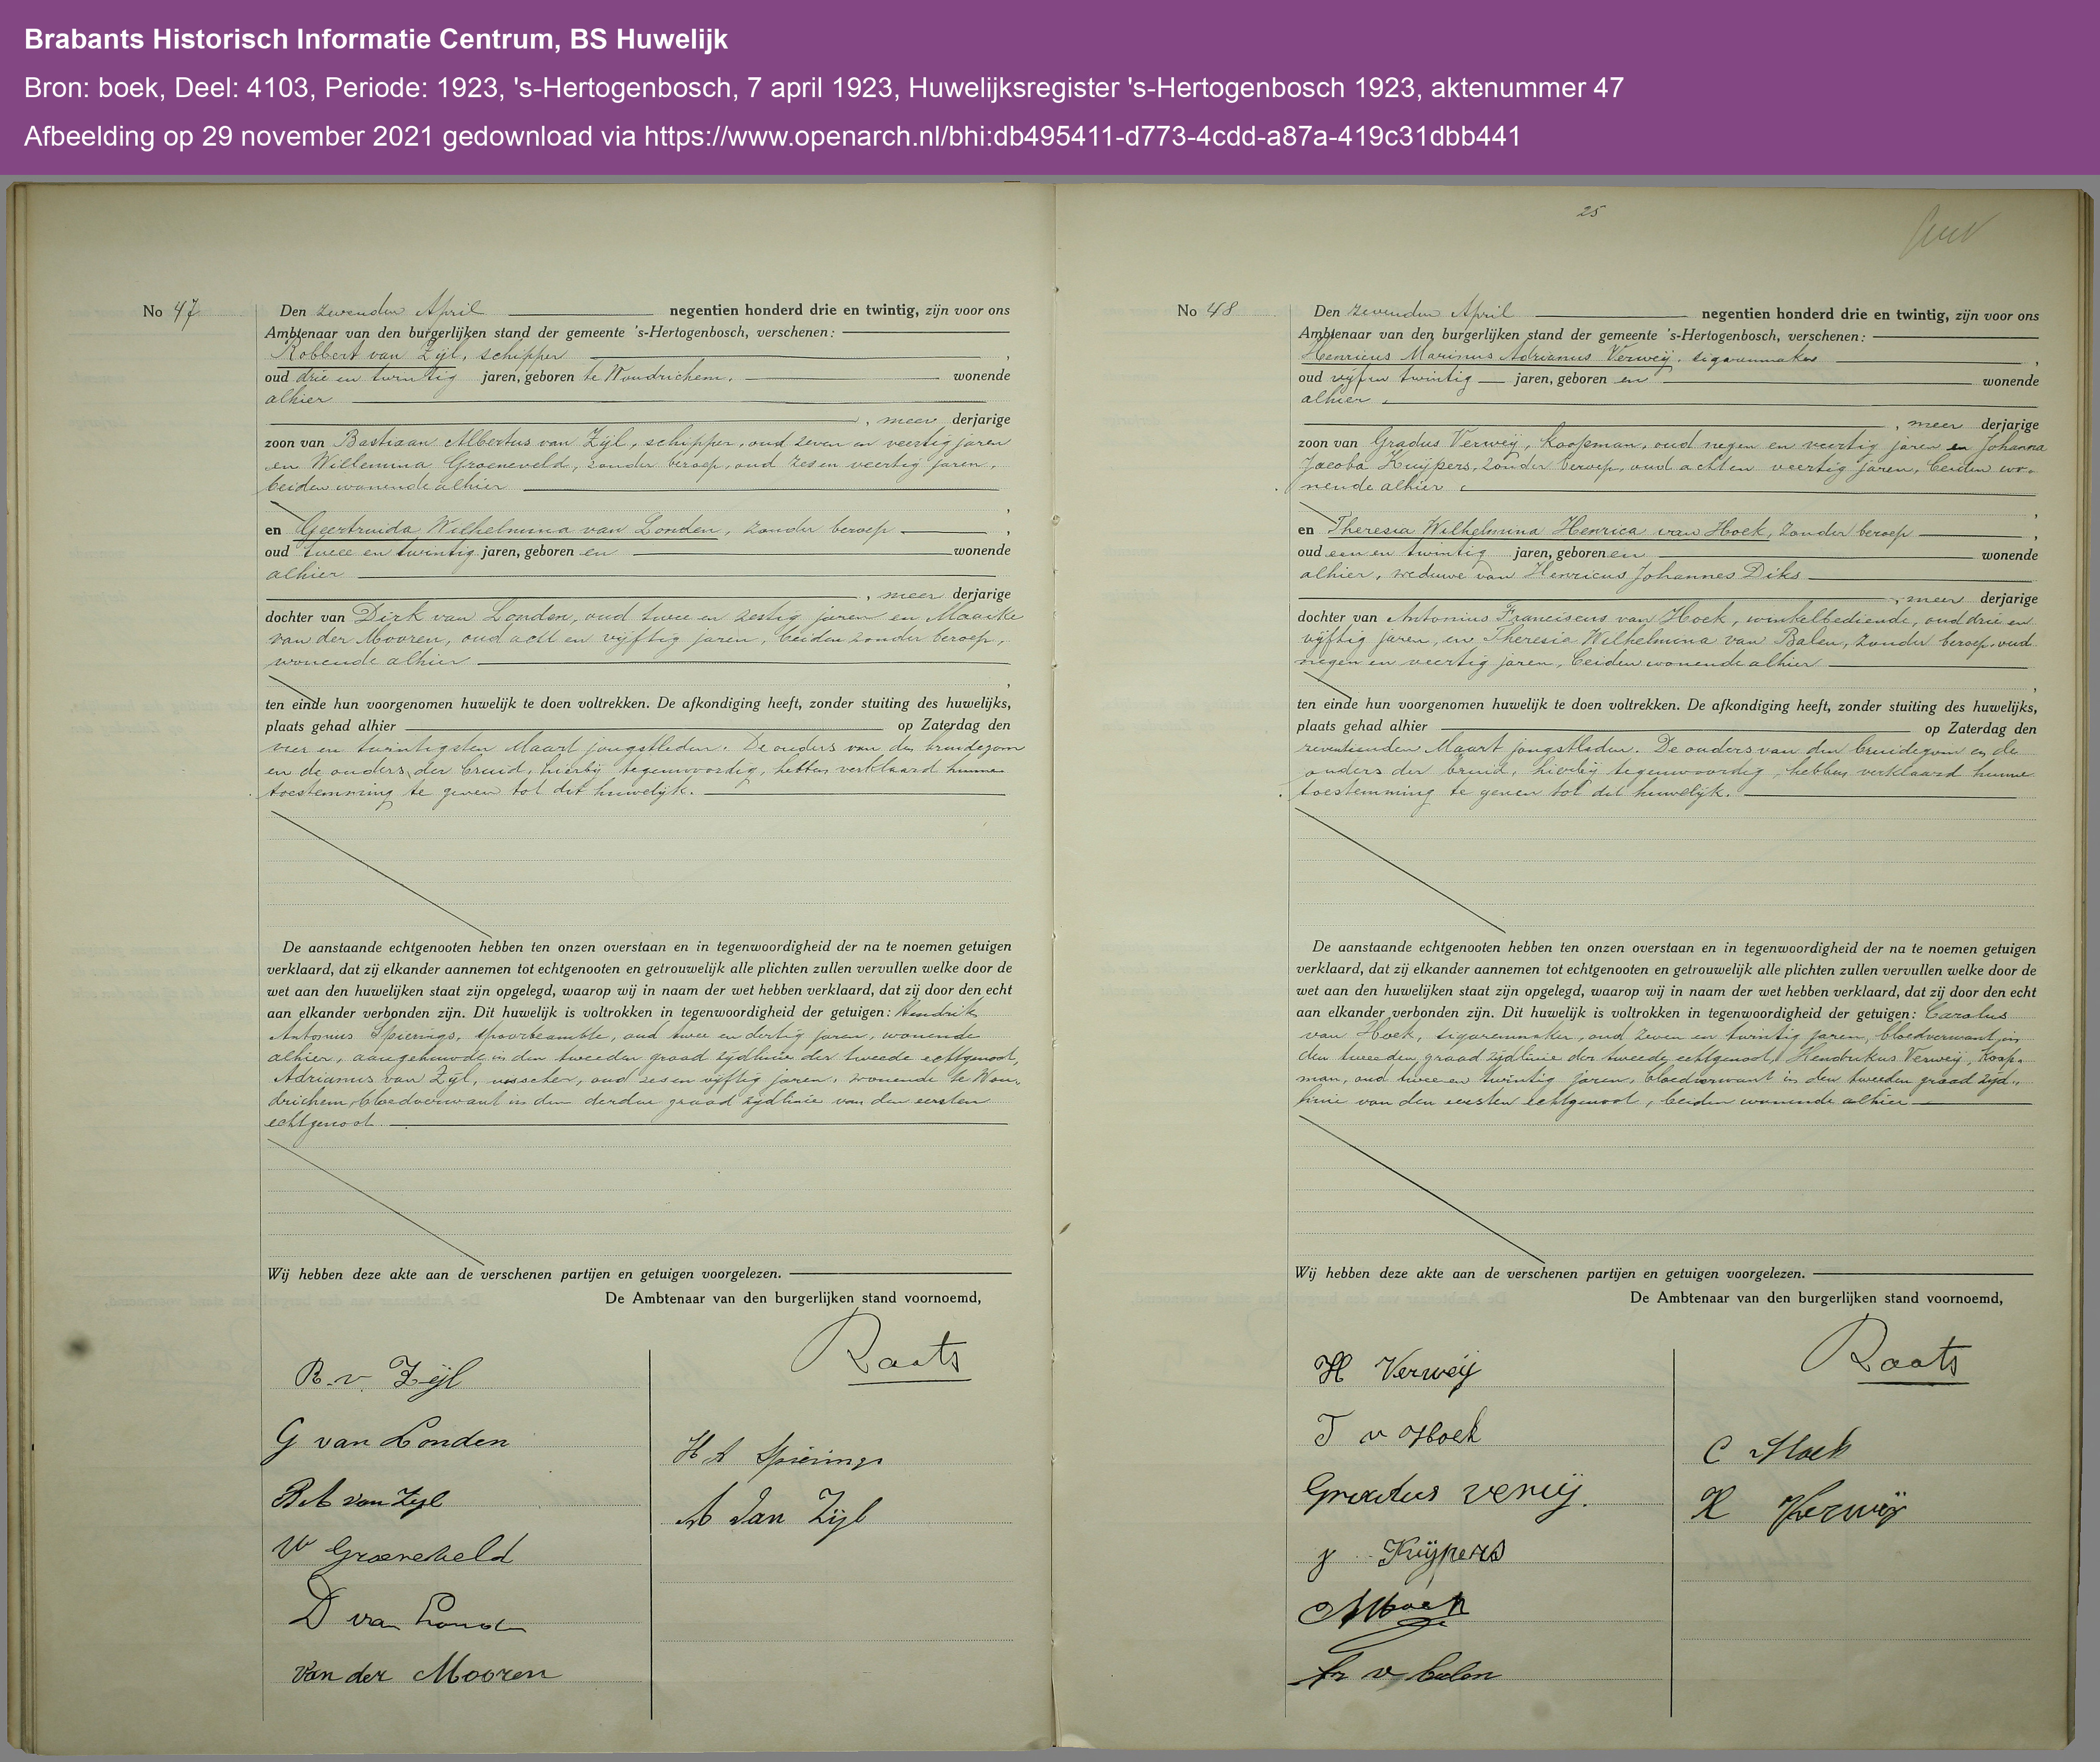 Brabants Historisch Informatie Centrum, BS Huwelijk
Bron: boek, Deel: 4103, Periode: 1923, 's-Hertogenbosch, 7 april 1923, Huwelijksregister 's-Hertogenbosch 1923, aktenummer 47
Afbeelding op 29 november 2021 gedownload via https://www.openarch.nl/bhi:db495411-d773-4cdd-a87a-419c31dbb441
No 47
Den zevenden April negentien honderd drie en twintig, zijn voor ons
Ambtenaar van den burgerlijken stand der gemeente 's-Hertogenbosch, verschenen:
Robbert van Zijl, schipper,
oud drie en twintig jaren, geboren te Woudrichem, wonende
alhier
, meer derjarige
zoon van Bastiaan Albertus van Zijl, schipper, oud zeven en veertig jaren
en Willemina Groeneveld, zonder beroep, oud zes en veertig jaren,
beiden wonende alhier
,
en Geertruida Wilhelmina van Londen, zonder beroep,
oud twee en twintig jaren, geboren en wonende
alhier
, meer derjarige
dochter van Dirk van Londen, oud twee en zestig jaren en Maaike
van der Mooren, oud acht en vijftig jaren, beiden zonder beroep,
wonende alhier
,
ten einde hun voorgenomen huwelijk te doen voltrekken. De afkondiging heeft, zonder stuiting des huwelijks,
plaats gehad alhier op Zaterdag den
vier en twintigsten Maart jongstleden. De ouders van den bruidegom
en de ouders der bruid, hierbij tegenwoordig, hebben verklaard hunne
toestemming te geven tot dit huwelijk.
De aanstaande echtgenooten hebben ten onzen overstaan en in tegenwoordigheid der na te noemen getuigen
verklaard, dat zij elkander aannemen tot echtgenooten en getrouwelijk alle plichten zullen vervullen welke door de
wet aan den huwelijken staat zijn opgelegd, waarop wij in naam der wet hebben verklaard, dat zij door den echt
aan elkander verbonden zijn. Dit huwelijk is voltrokken in tegenwoordigheid der getuigen: Hendrik
Antonius Spierings, spoorbeambte, oud twee en dertig jaren, wonende
alhier, aangehuwde in den tweeden graad zijdlinie der tweede echtgenoot,
Adrianus van Zijl, visscher, oud zes en vijftig jaren, wonende te Wou-
drichem, bloedverwant in den derden graad zijdlinie van den eersten
echtgenoot.
Wij hebben deze akte aan de verschenen partijen en getuigen voorgelezen.
De Ambtenaar van den burgerlijken stand voornoemd,
Raats
R. v. Zijl
G van Londen
H A Spierings
B A van Zijl
A Van Zijl
W Groeneveld
D van Londen
Van der Mooren
25
No 48
Den zevenden April negentien honderd drie en twintig, zijn voor ons
Ambtenaar van den burgerlijken stand der gemeente 's-Hertogenbosch, verschenen:
Henricus Marinus Adrianus Verweij, sigarenmaker,
oud vijf en twintig jaren, geboren en wonende
alhier,
, meer derjarige
zoon van Gradus Verweij, koopman, oud negen en veertig jaren en Johanna
Jacoba Kuijpers, zonder beroep, oud acht en veertig jaren, beiden wo-
nende alhier
,
en Theresia Wilhelmina Henrica van Hoek, zonder beroep,
oud een en twintig jaren, geboren en wonende
alhier, weduwe van Henricus Johannes Diks
, meer derjarige
dochter van Antonius Franciscus van Hoek, winkelbediende, oud drie en
vijftig jaren, en Theresia Wilhelmina van Balen, zonder beroep, oud
negen en veertig jaren, beiden wonende alhier
,
ten einde hun voorgenomen huwelijk te doen voltrekken. De afkondiging heeft, zonder stuiting des huwelijks,
plaats gehad alhier op Zaterdag den
zeventienden Maart jongstleden. De ouders van den bruidegom en de
ouders der bruid, hierbij tegenwoordig, hebben verklaard hunne
toestemming te geven tot dit huwelijk.
De aanstaande echtgenooten hebben ten onzen overstaan en in tegenwoordigheid der na te noemen getuigen
verklaard, dat zij elkander aannemen tot echtgenooten en getrouwelijk alle plichten zullen vervullen welke door de
wet aan den huwelijken staat zijn opgelegd, waarop wij in naam der wet hebben verklaard, dat zij door den echt
aan elkander verbonden zijn. Dit huwelijk is voltrokken in tegenwoordigheid der getuigen: Carolus
van Hoek, sigarenmaker, oud zeven en twintig jaren, bloedverwant in
den tweeden graad zijdlinie der tweede echtgenoot, Hendrikus Verweij, koop-
man, oud twee en twintig jaren, bloedverwant in den tweeden graad zijd-
linie van den eersten echtgenoot, beiden wonende alhier
Wij hebben deze akte aan de verschenen partijen en getuigen voorgelezen.
De Ambtenaar van den burgerlijken stand voornoemd,
Raats
H Verweij
T v Hoek
C v Hoek
Gradus verwij.
H Verwij
J Kuijpers
v Balen